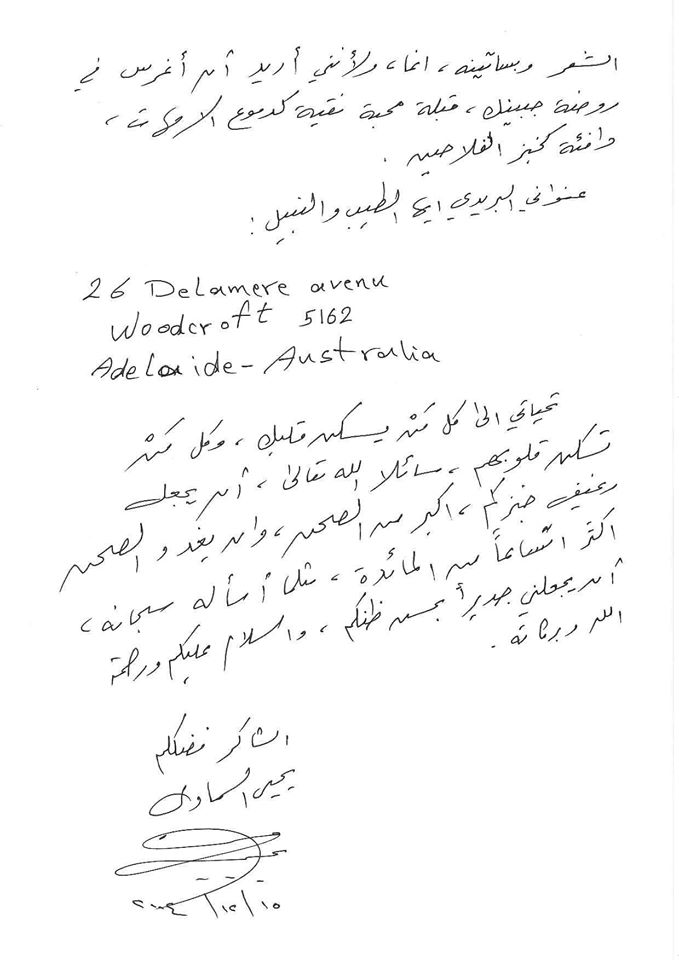 الشعر وبساتينه ، انما ، ولأنني أريد أن أغرس في
روضة جبينك ، قبلة محبة نقية كدموع الامهات ،
دافئة كخبز الفلاحين .
عنواني البريدي ايها الطيب والنبيل :
26 Delamere avenu
Woodcroft 5162
Adelaide - Australia
تحياتي الى كل مَنْ يسكن قلبك ، وكل مَنْ
تسكن قلوبهم ، سائلا الله تعالى ، أن يجعل
رغيف خبزكم ، اكبر من الصحن ، وان يغدو الصحن
اكثر اتساعاً من المائدة ، مثلما أسأله سبحانه ،
أن يجعلني جديراً بحسن ظنكم ، والسلام عليكم ورحمة
الله وبركاته .
الشاكر فضلكم
يحيى السماوي
يحيى
١٥/١٢/٢٠٠٤